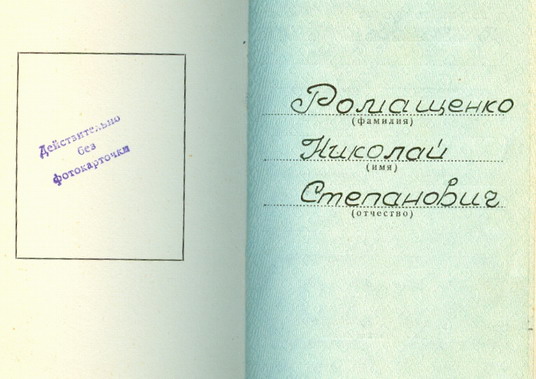 Действительно
без
фотокарточки
Ромащенко
(фамилия)
Николай
(имя)
Степанович
(отчество)